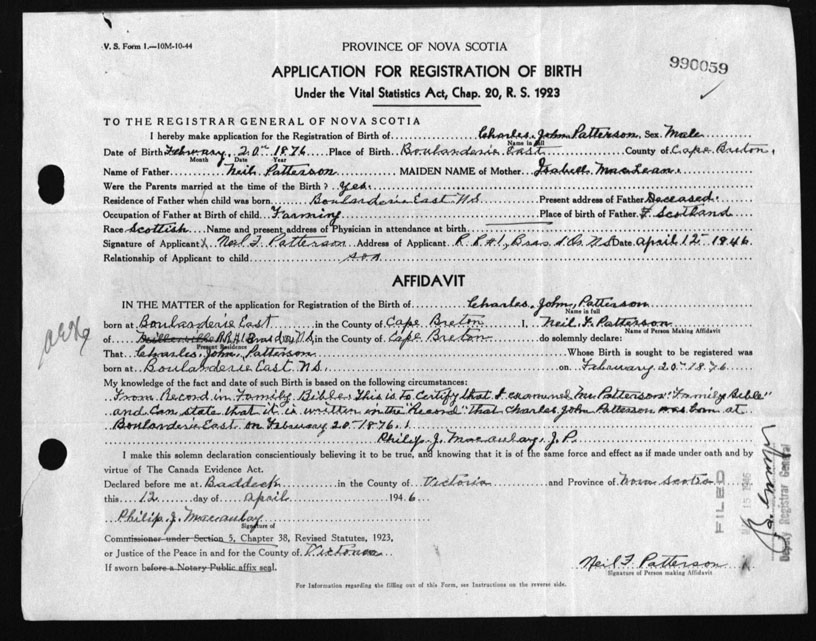 V. S. Form 1.—10M-10-44
PROVINCE OF NOVA SCOTIA
990059
APPLICATION FOR REGISTRATION OF BIRTH
Under the Vital Statistics Act, Chap. 20, R. S. 1923
TO THE REGISTRAR GENERAL OF NOVA SCOTIA
I hereby make application for the Registration of Birth of Charles John Patterson Sex Male
Name in full
Date of Birth February 20th 1876 Place of Birth Boularderie East County of Cape Breton.
Month Date Year
Name of Father Neil Patterson MAIDEN NAME of Mother Isabell MacLean.
Were the Parents married at the time of the Birth? Yes.
Residence of Father when child was born Boularderie East N.S. Present address of Father Deceased.
Occupation of Father at Birth of child Farming Place of birth of Father Scotland
Race Scottish Name and present address of Physician in attendance at birth
Signature of Applicant X Neil F Patterson Address of Applicant R.R.#1, Bras d'Or N.S. Date April 12th 1946.
Relationship of Applicant to child son
AFFIDAVIT
IN THE MATTER of the application for Registration of the Birth of Charles John Patterson
Name in full
born at Boularderie East in the County of Cape Breton I, Neil F. Patterson
Name of Person Making Affidavit
of R.R.#1 Bras d'or N.S. in the County of Cape Breton do solemnly declare:
Present Residence
That Charles John Patterson Whose Birth is sought to be registered was
born at Boularderie East N.S. on February 20th 1876
My knowledge of the fact and date of such Birth is based on the following circumstances:
From Record in Family Bible. This is to Certify that I examined Mr. Patterson's "Family Bible"
and Can state that it is written in the Record "that Charles John Patterson was born at
Boularderie East on February 20th 1876.
Philip J. Macaulay, J.P.
I make this solemn declaration conscientiously believing it to be true, and knowing that it is of the same force and effect as if made under oath and by
virtue of The Canada Evidence Act.
Declared before me at Baddeck in the County of Victoria and Province of Nova Scotia
this 12 day of April 1946
Philip J. Macaulay
Signature of
Commissioner under Section 5, Chapter 38, Revised Statutes, 1923,
or Justice of the Peace in and for the County of Victoria
If sworn before a Notary Public affix seal.
Neil F Patterson
Signature of Person making Affidavit
For Information regarding the filling out of this Form, see Instructions on the reverse side.
FILED
15 1946
Deputy Registrar General